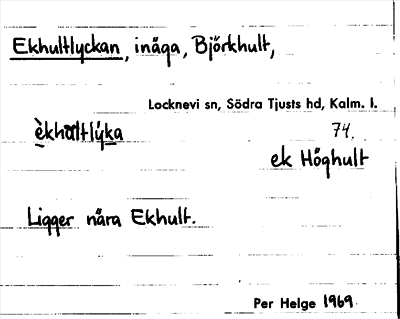 Ekhultlyckan, inäga, Björkhult,
Locknevi sn, Södra Tjusts hd, Kalm. l.
èkhultlýka
74.
ek Höghult
Ligger nära Ekhult.
Per Helge 1969.